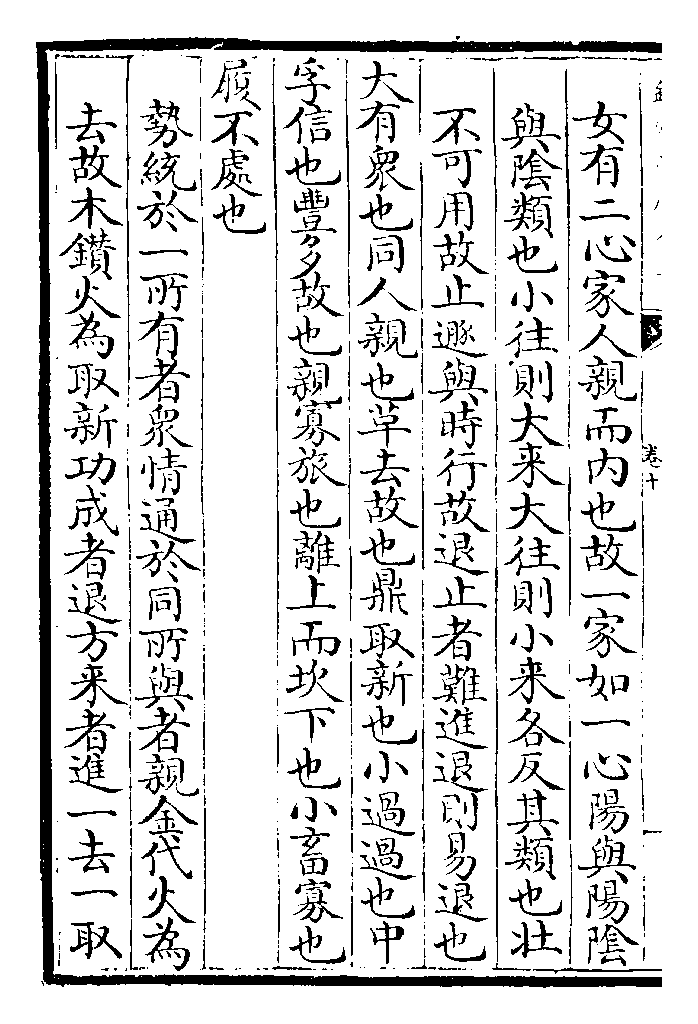 女有二心家人親而内也故一家如一心陽與陽陰
與陰類也小往則大来大往則小来各反其類也壮
不可用故止遯與時行故退止者難進退則易退也
大有衆也同人親也草去故也鼎取新也小過過也中
孚信也豐多故也親寡旅也離上而坎下也小畜寡也
履不處也
勢統於一所有者衆情通於同所與者親金代火為
去故木鑚火為取新功成者退方来者進一去一取
卷十